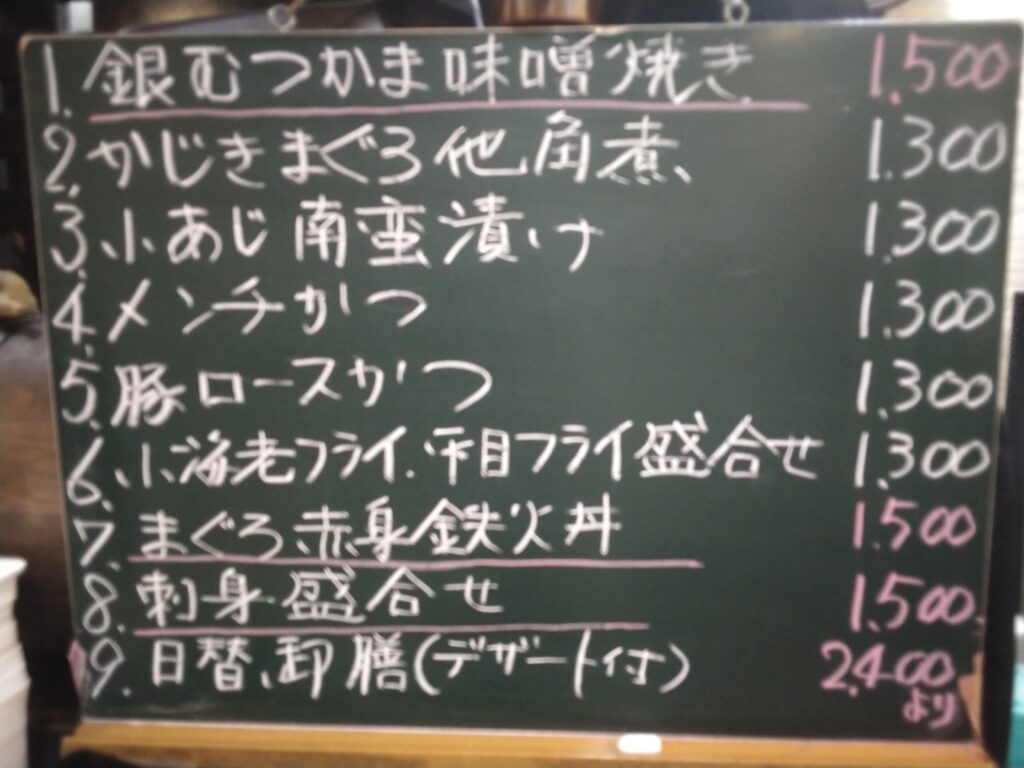 1. 銀むつかま味噌焼き 1.500
2. かじきまぐろ他角煮 1.300
3. 小あじ南蛮漬け 1.300
4. メンチかつ 1.300
5. 豚ロースかつ 1.300
6. 小海老フライ.平目フライ盛合せ 1.300
7. まぐろ赤身鉄火丼 1.500
8. 刺身盛合せ 1.500
9. 日替、卸膳(デザート付) 2.400
より